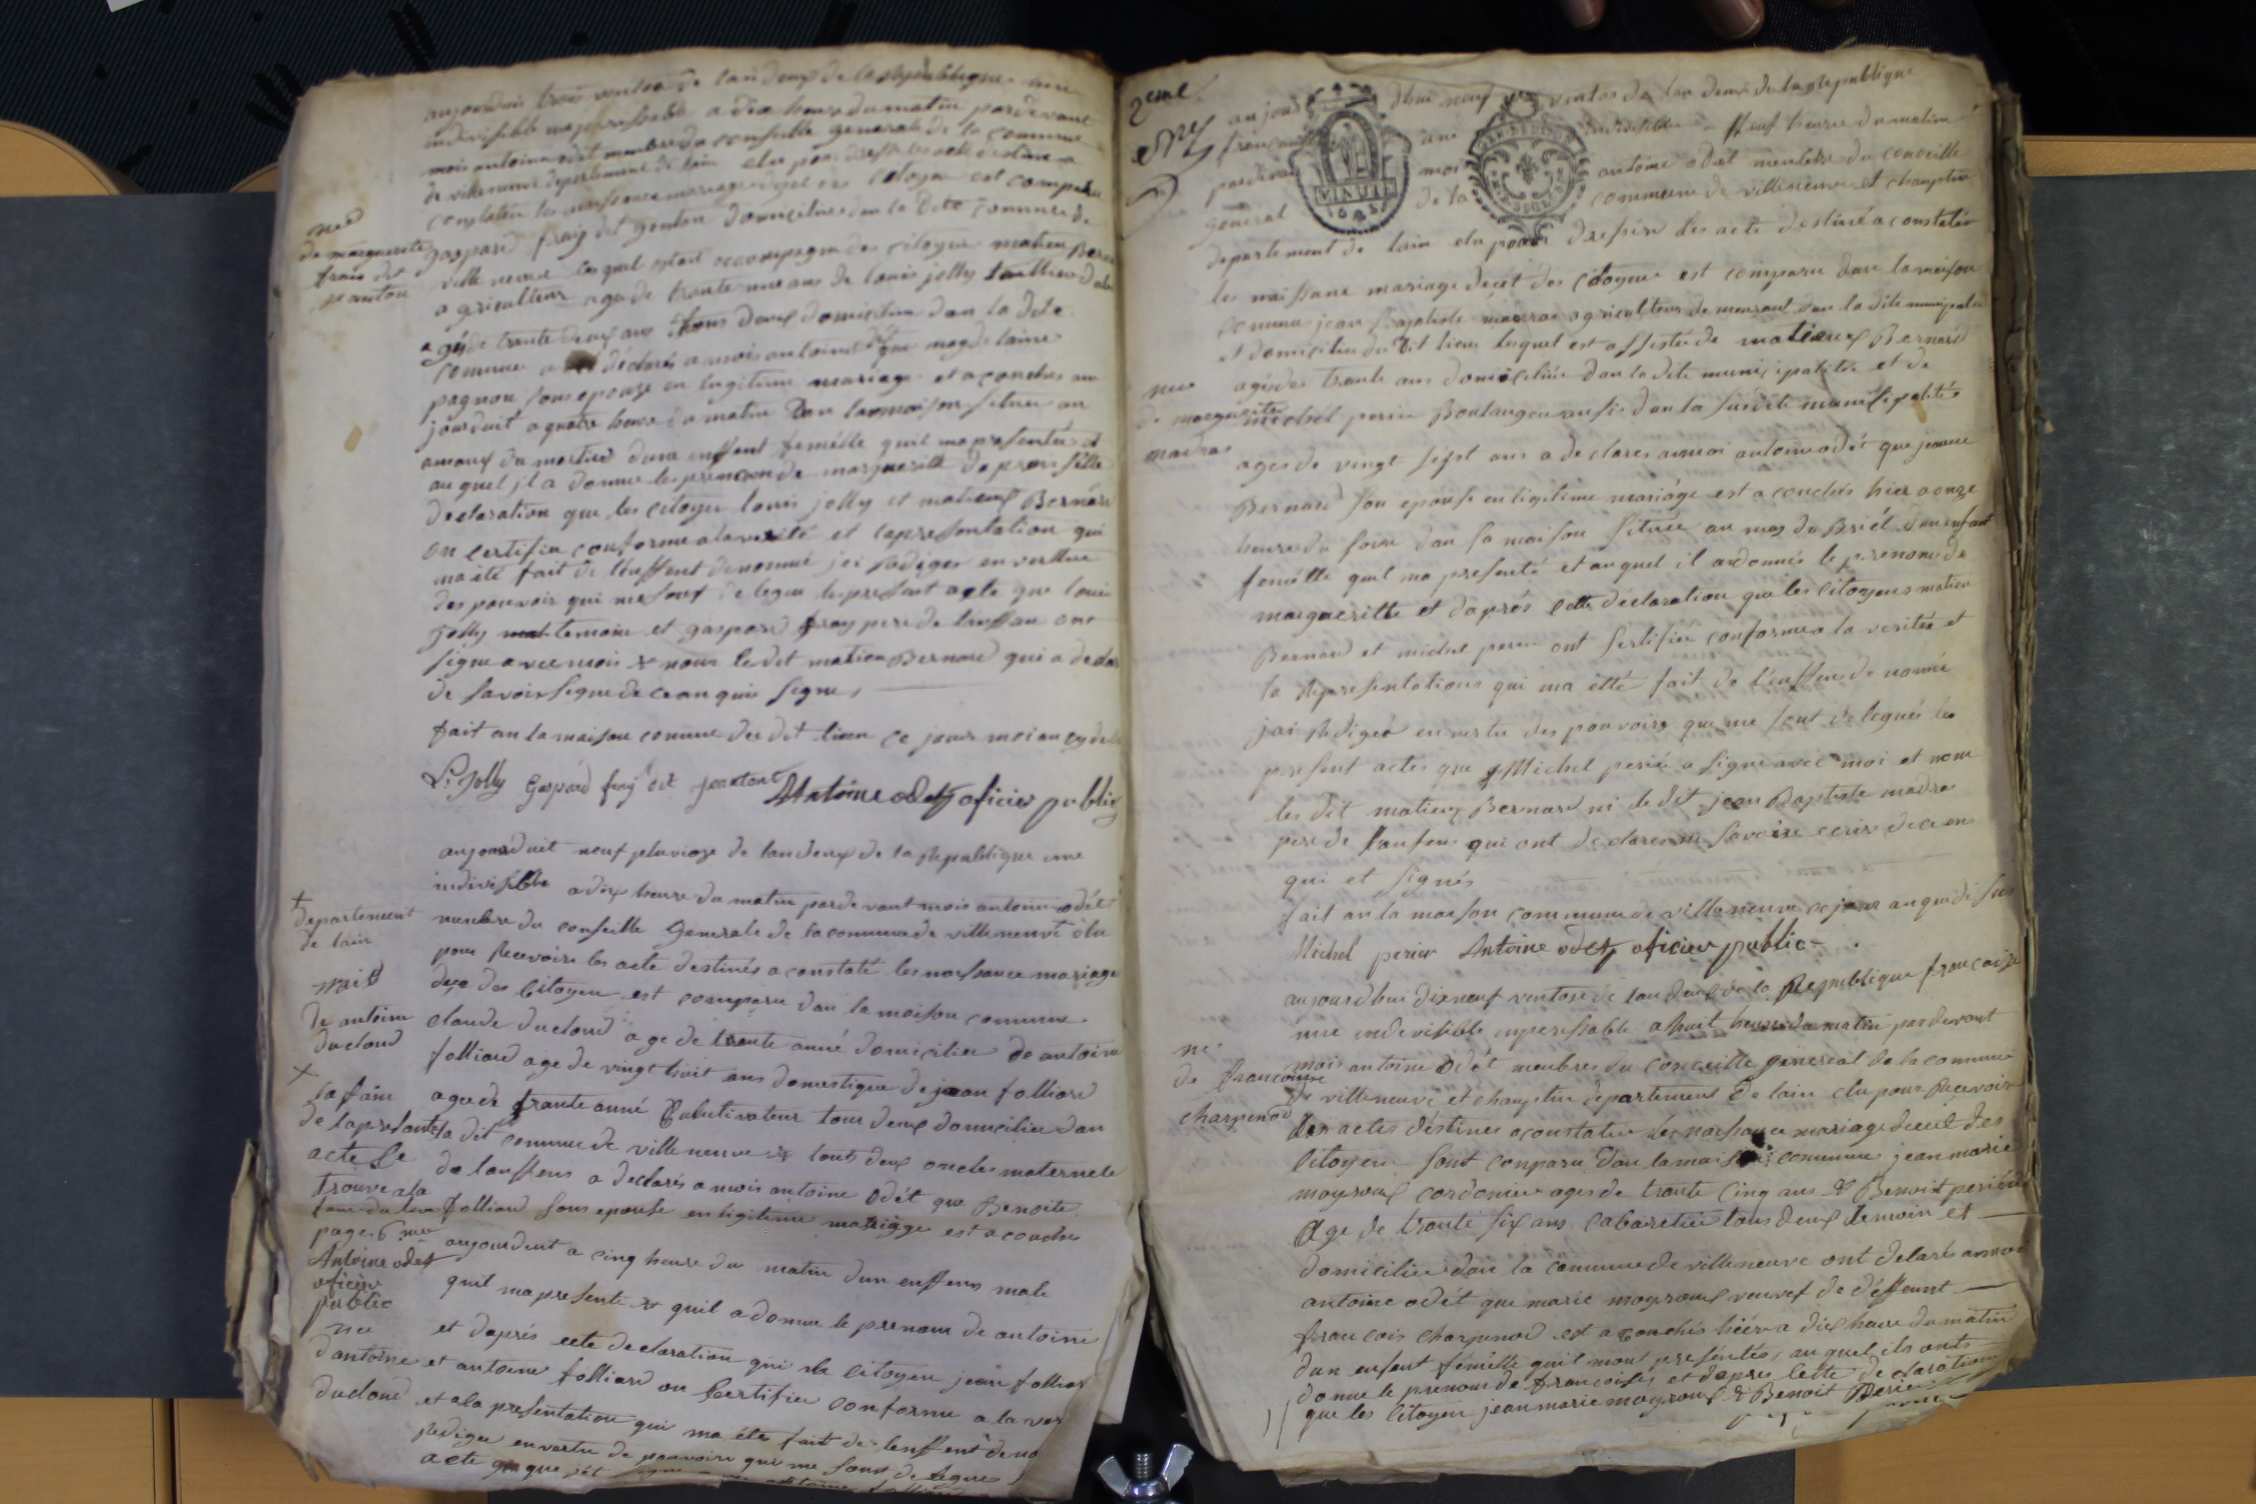 aujourduis trois ventose de landeux de la Republique une
indivisible inperissable a dix heures du matin pardevant
mois antoine odet membre du conseille generale de la commune
de villeneuve departement de lain elu pour dresse les acte destiné a
constater les naissance mariage deçet des citoyen est comparu
gaspard fray dit domicilier dan la dite commune de
ville neuve lesquel estait accompagné des citoyen matieu Bernard
agriculteur age de trante une ans de louis jolly
agé de trante deux ans tous deux domicilier dan la dite
comune a déclaré a mois antoine odet que magdelaine
pagnon son epouze en legitime mariage est aconcher au
jourduit a quatre heure du matin dan la maison situer au
ameau du mortier dun enffent femélle quil ma presentée et
au quel jl a donner les prenom de marguerite dapres sette
declaration que les citoyen louis jolly et matieux Bernard
on certifier conforme a la verité et la presentation qui
ma été fait de lenffent denommé jei rediger en vertue
des pouvoir qui me sont deleguer le present acte que louis
jolly temoin et gaspard fray pere de lenffan ont
signe avec mois & nom le dit matieu Bernard qui a declare
de savoir signe de ce anquis signe
fait an la maison comune du dit lieu ce jour mois an
L. Jolly Gaspard fray dit janton Antoine odet oficier public
né
de marguerite
fraie dit
janton
aujourduit neuf pluvioze de landeux de la Republique une
indivisible a dix heure du matin pardevant mois antoine odét
menbre du conseille Generale de la comune de villeneuve élu
pour Recevoire les acte destinés a constaté les naissance mariage
deçe des Citoyen est comparu dan la maison comune
claude duclous age de trante anné domicilier de antoine
folliard age de vingt huit ans domestique de jean folliard
age de trante anné Cultivateur tous deux domicilier dan
la dit commune de ville neuve & tout deux oncles maternele
de lanffens a declarés a mois antoine odét que Benoite
folliard sons epouse en legitime mariage est a coucher
aujourduit a cinq heure du matin dun enffens male
quil ma presente & quil a donner le prenom de antoine
et daprés cete declaration qui les citoyen jean folliard
et antoine folliard on Certifier conforme a la ver
et a la presentation qui ma éte fait de lenffent deno
rediger en vertu de pouvoire qui me sont deleguer
acte que
+
departement
de lain
naiss
de antoine
duclous
x
de la presente
acte se
trouve a la
page 6 me
Antoine odet
oficier
public
né
dantoine
duclous
2eme
aujourdhui neuf ventos de lan deux de la Republique
française une indivisible a Neuf heure du matin
pardevan moi antoine odet membre du conseille
général de la commune de villeneuve et chanptein
departement de lain elu pour dresser les acte destiné a constatér
les naissanse mariage deçét des Citoyen est comparu dan la maison
comune jean Baptiste madras agriculteur demeurant dan la dite municipalité
et domicilier du dit lieu lesquel est assisté de matieux Bernard
agés de trante ans domiciliée dan la dite municipalitée et de
michel perier Boulanger aussi dan la susdite municipalités
agés de vingt sept ans a declarer a moi antoine odét que jeanne
Bernard son epouse en legitime mariage est a couchée hier a onze
heure du soire dan sa maison située au mas du Briét dun enfant
femélle quil ma presenté et auquel il a donnés le prenom de
margueritte et daprés cette déclaration que les Citoyens matieu
Bernard et michel perier ont sertifiée conforme a la veritée et
la representations qui ma étté fait de l'enffens denomée
jai redigée en vertu des pouvoirs que me sont delegués les
present actes que Michel perier a signé avec moi et nom
les dit matieux Bernard ni le dit jean Baptiste madras
pere de lanfent qui ont declarer ne savoire ecrire de ce en
qui et signés
fait an la maison commune de villeneuve ce jour an que dessus
Michel perier Antoine odet oficier public
née
de marguerite
madras
aujourdhui dixneuf ventose de lan deux de la Republique françaize
une indevisible inperissable a huit heure du matin pardevant
mois antoine odét menbres du conseille géneral de la commune
de villeneuve et chanptein département de lain elu pour Recevoir
les actes déstiner a constater les naissance mariage deceé des
Citoyen sont conparu dan la maison commune jean marie
mayroux cordonier ages de trante Cinq ans & Benoit perier
Age de trante six ans cabaretier tous deux temoin et
domicilier dan la commune de villeneuve ont delaré a moi
antoine odét que marie mayroux veuvef de déffeunt
françois charpenod est a couchés hiér a dix heure du matin
dun enfent femélle quil mont presentés, auquel ils onts
donne le prenom de francoises et dapres cette declaration
que les Citoyen jean marie mayroux & Benoit Perier
né
de francoise
charpenod